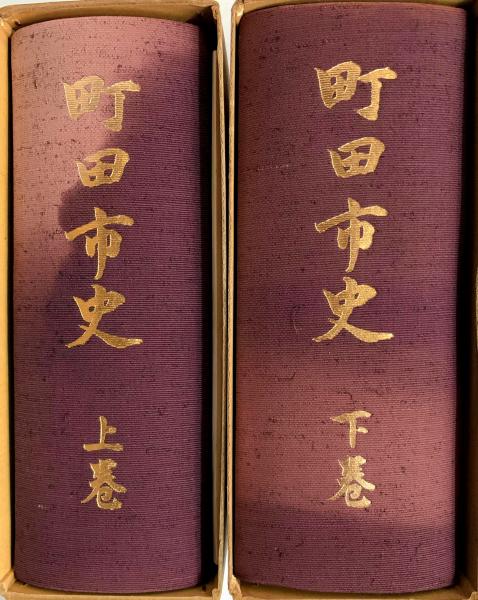 町田市史
上巻
町田市史
下巻